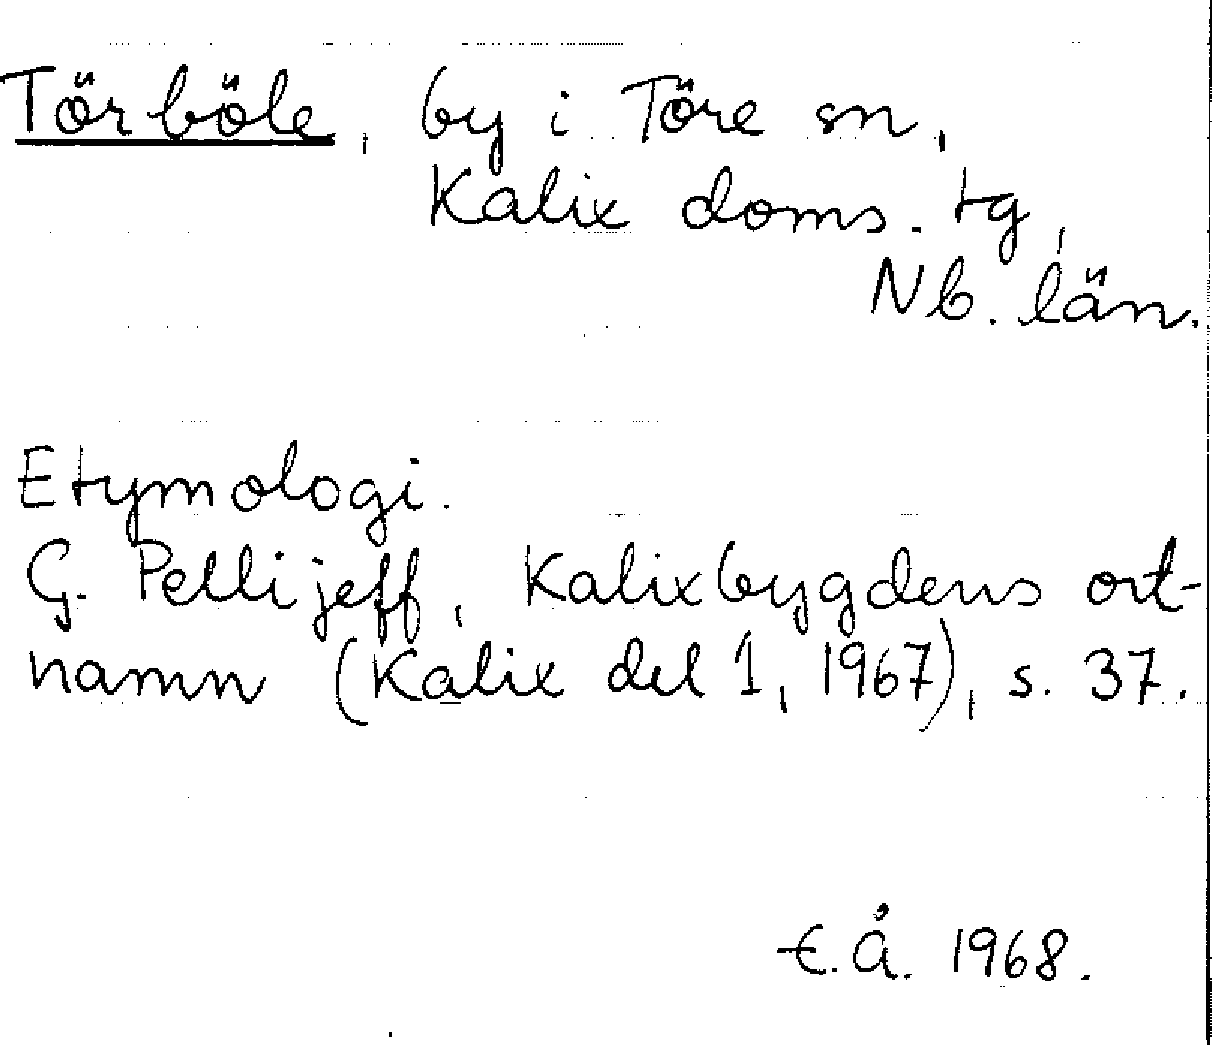 Törböle, by i Töre sn,
Kalix doms. tg,
Nb. län.
Etymologi.
G. Pellijeff, Kalixbygdens ort-
namn (Kalix del 1, 1967), s. 37.
E.Å. 1968.